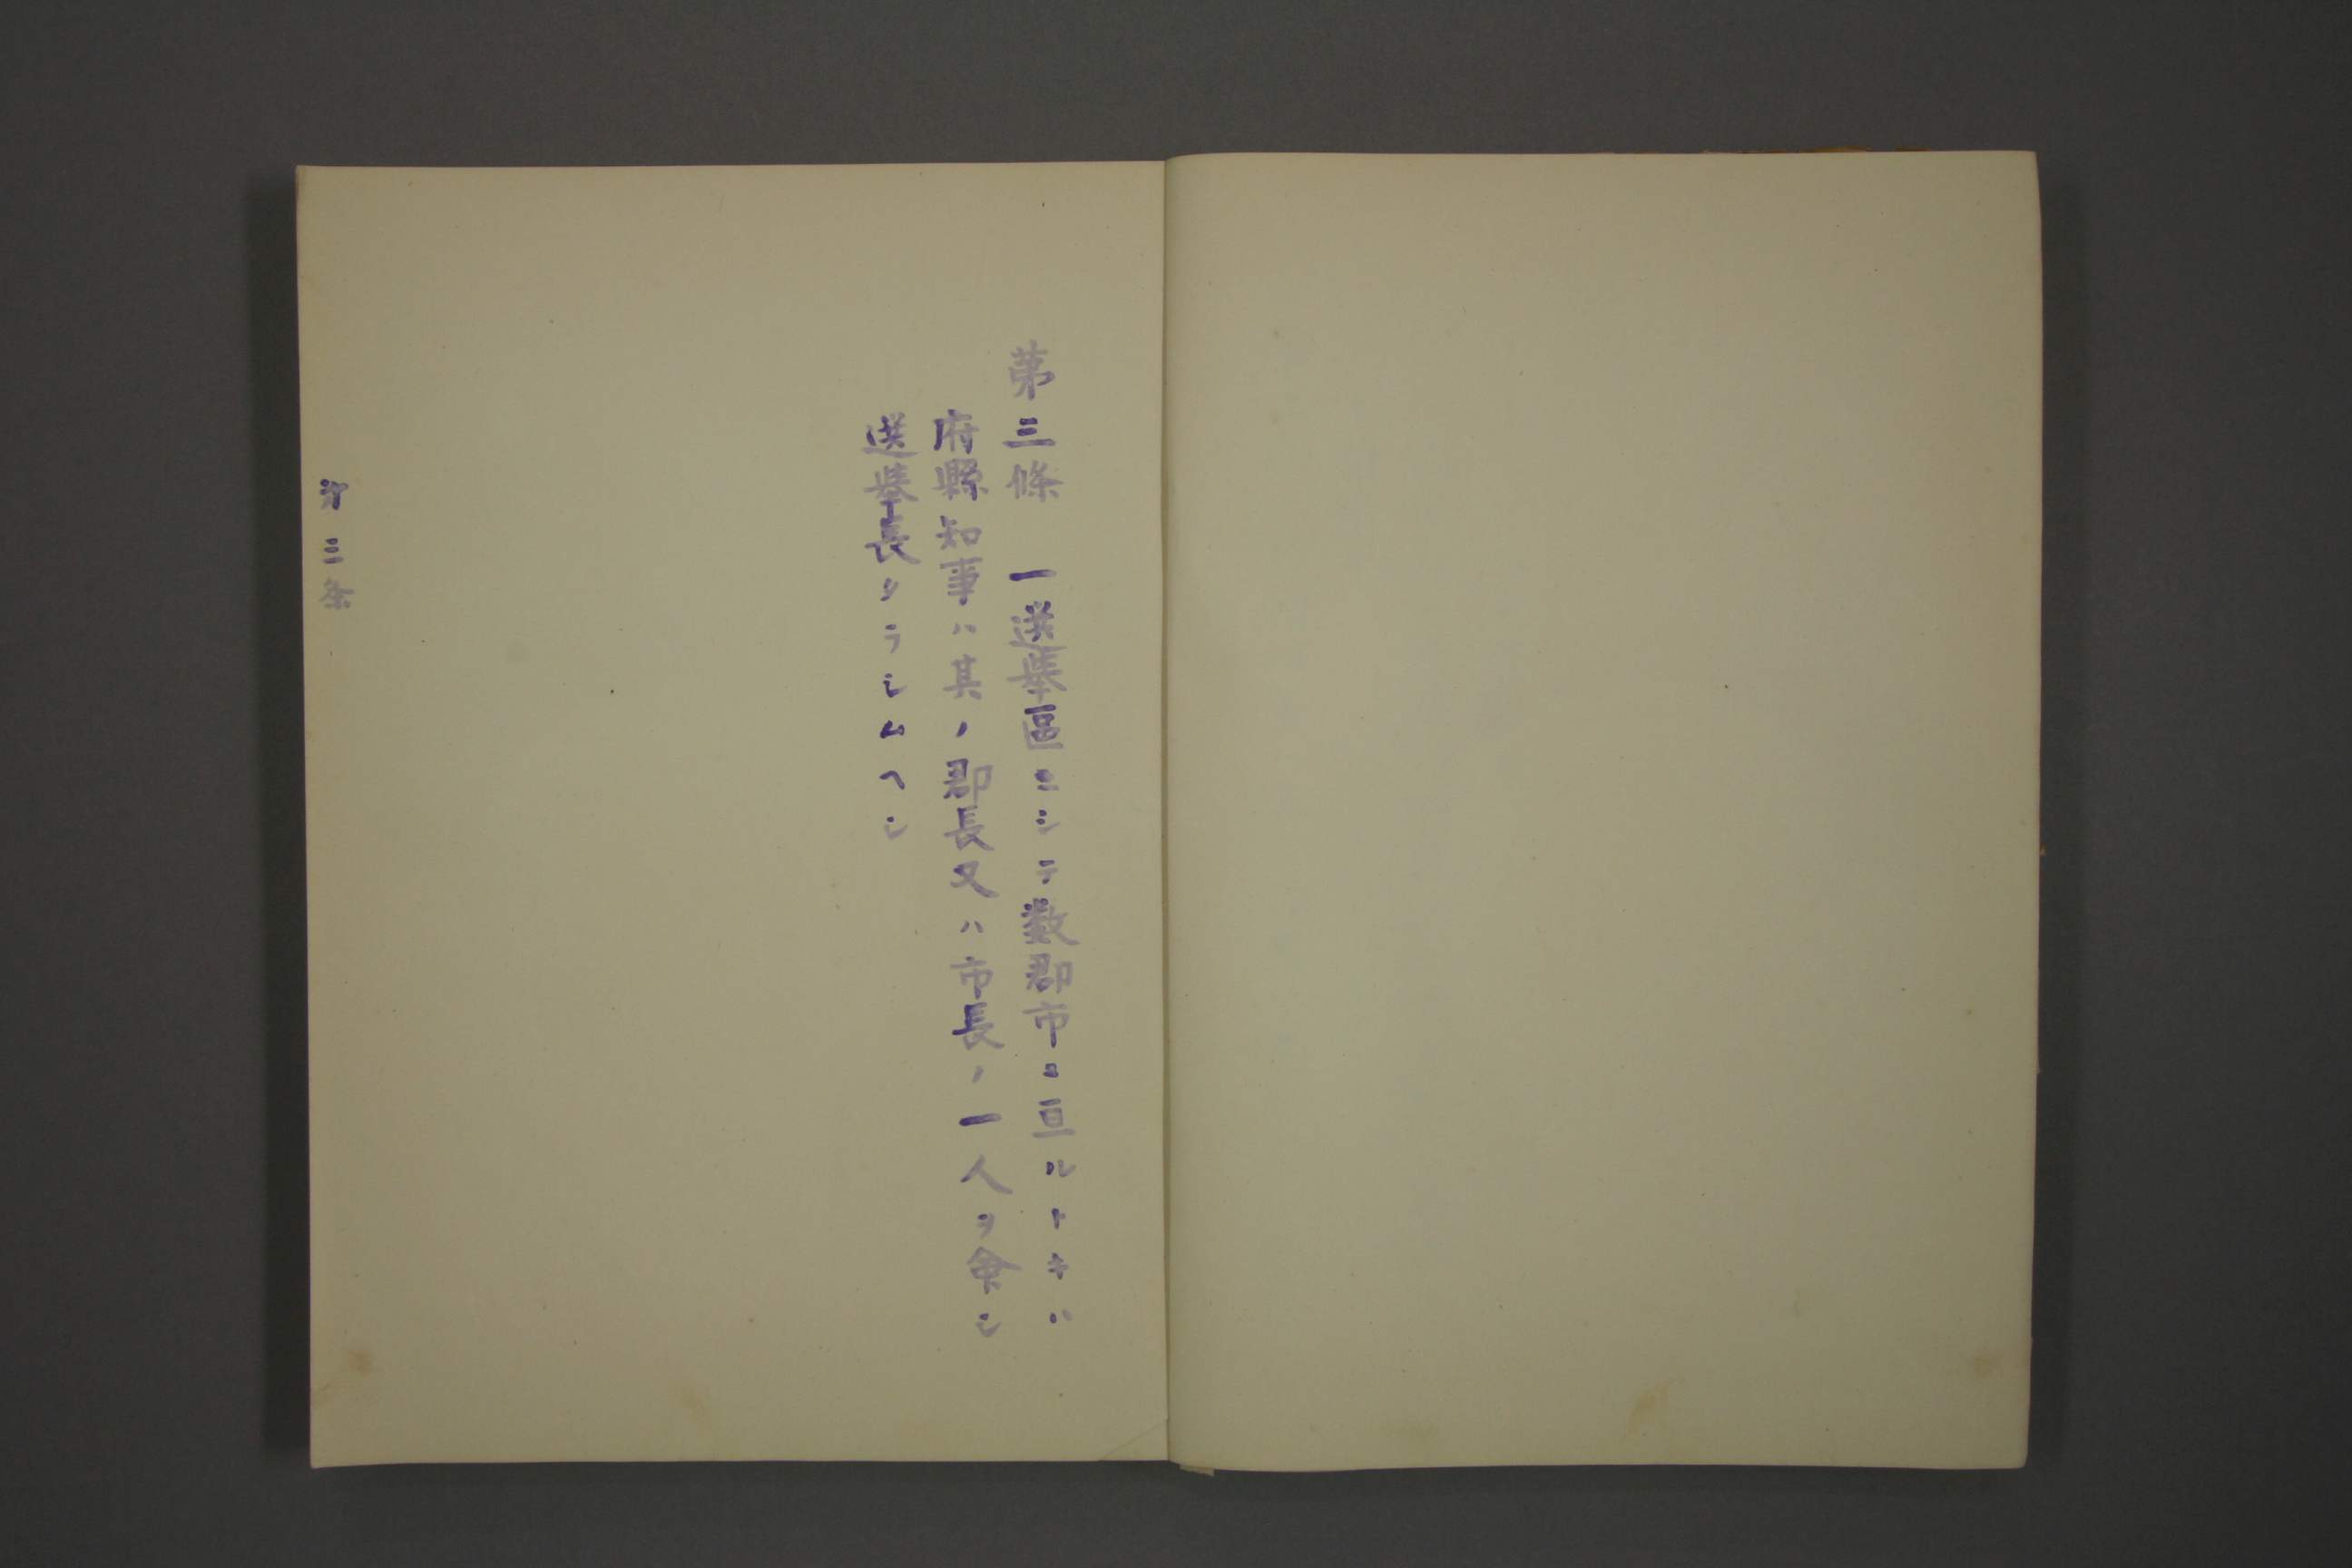 第三條　一選擧區ニシテ数郡市ニ亘ルトキハ
府縣知事ハ其ノ郡長又ハ市長ノ一人ヲ命シ
選擧長タラシムヘシ
第三条